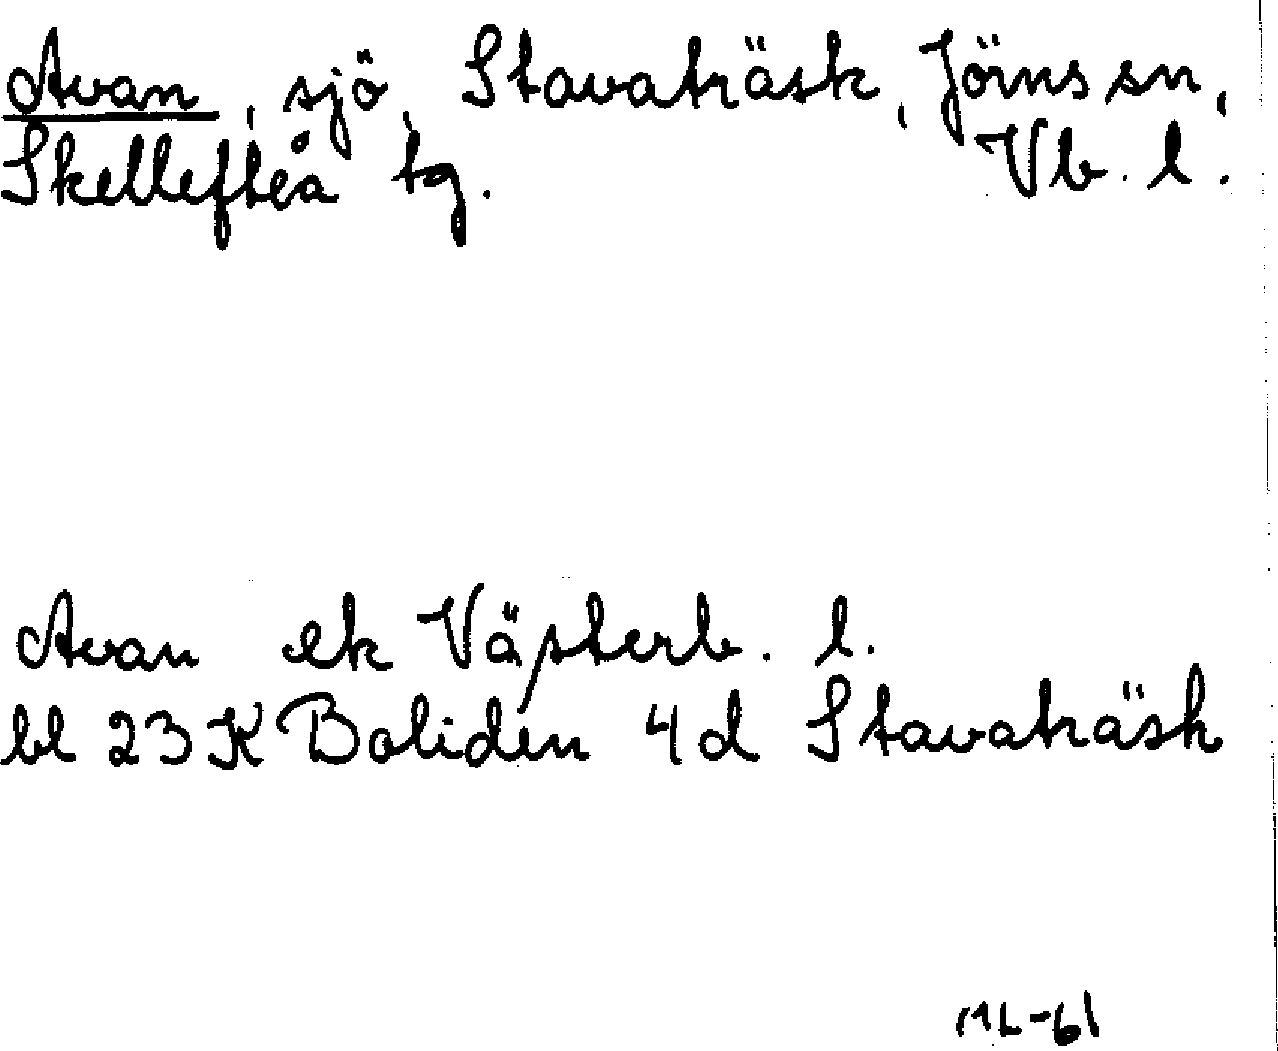 Avan, sjö, Stavaträsk, Jörns sn,
Skellefteå tg. Vb. l.
Avan ek Västerb. l.
bl 23 K Boliden 4d Stavaträsk
ML-61